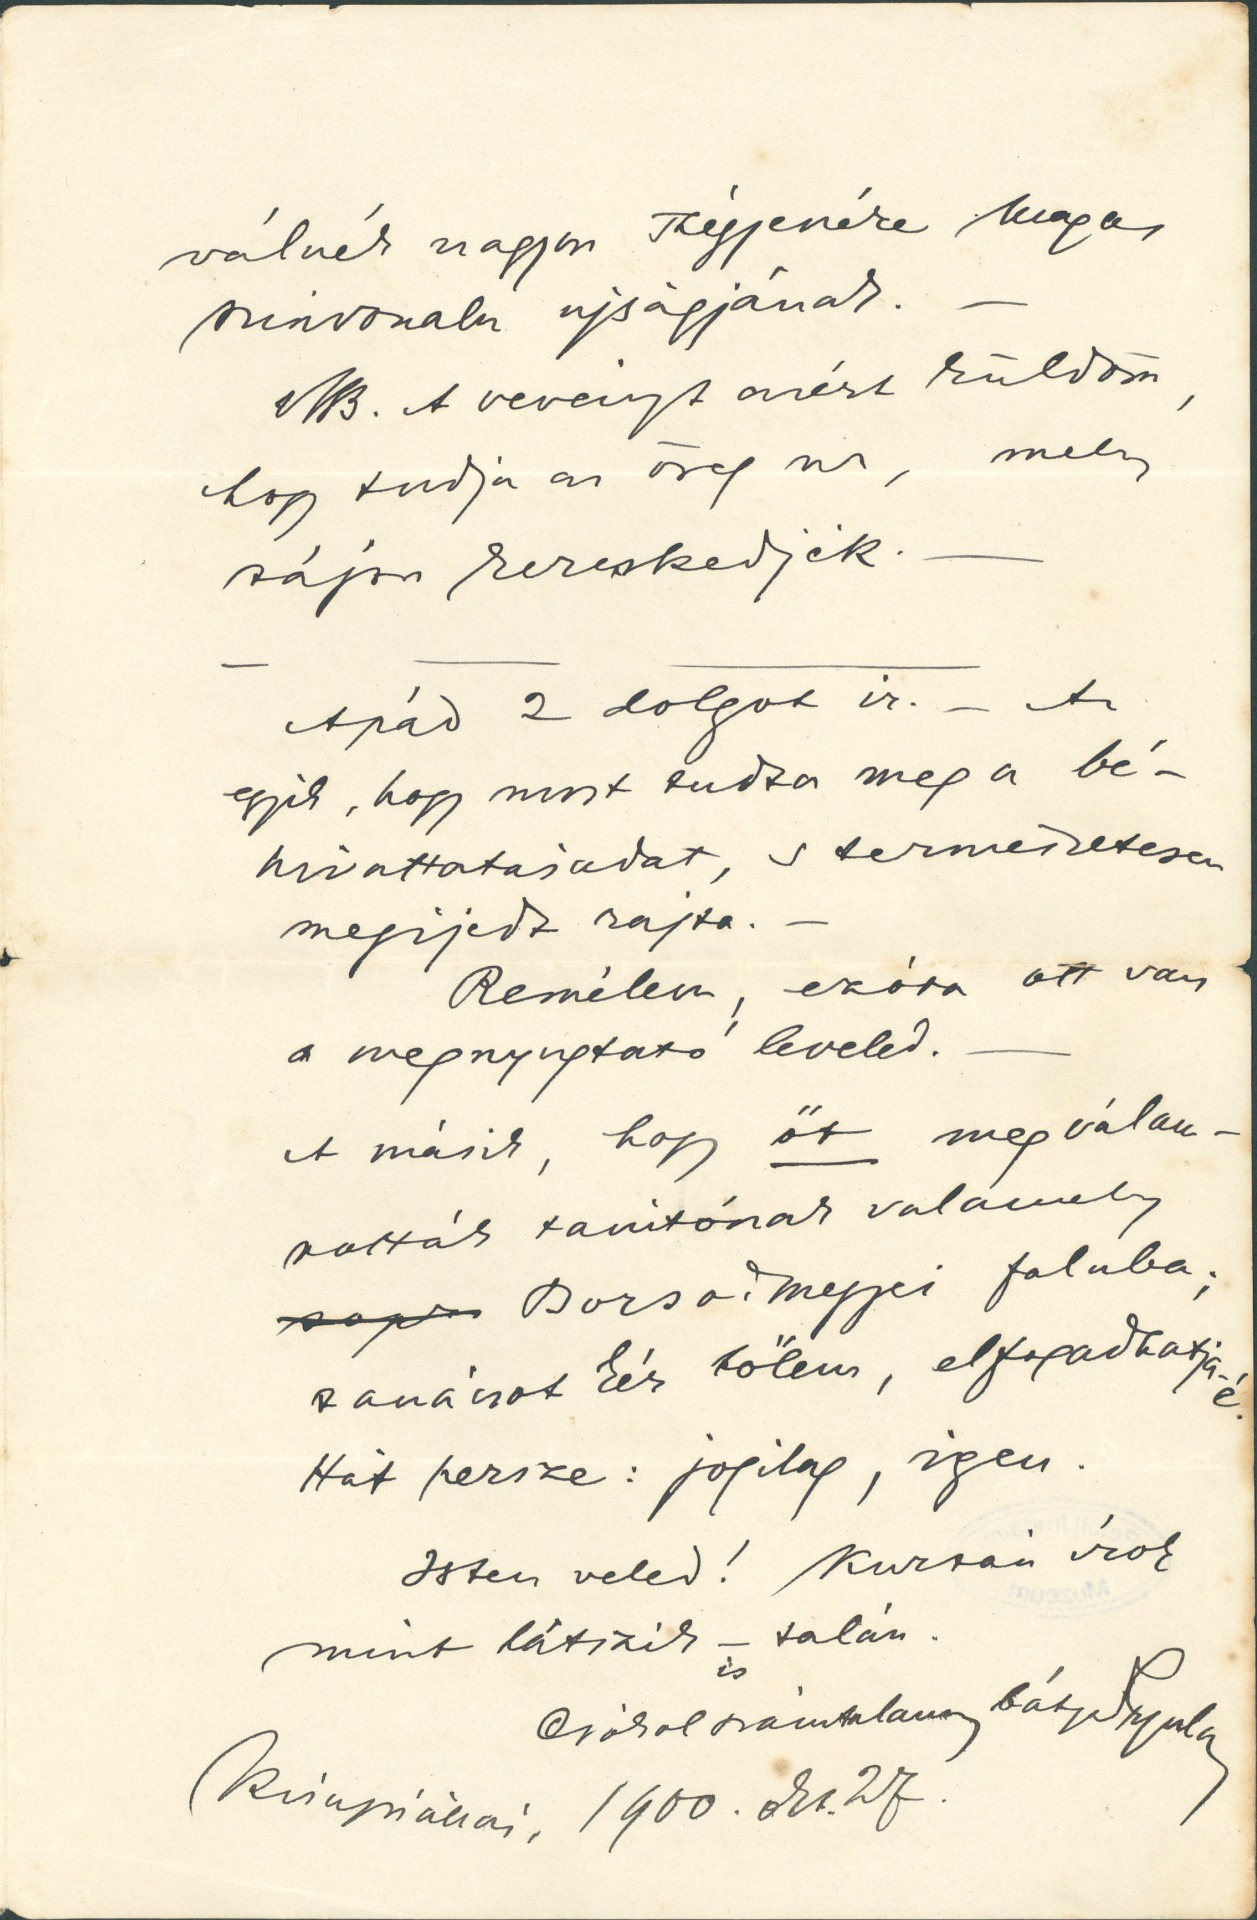 válnék nagyon szégyenére magas
szinvonalu ujságjának. —
NB. A vevényt azért küldöm,
hogy tudja az öreg ur, mely
tájon kereskedjék. —
Apád 2 dolgot ir. — Az
egyik, hogy most tudta meg a bé-
hivattatásadat, s természetesen
megijedt rajta. —
Remélem, ezóta ott van
a megnyugtató leveled. —
A másik, hogy őt megválasz-
tották tanitónak valamely
Borsodmegyei faluba;
tanácsot kér tőlem, elfogadhatja-é.
Hát persze: jogilag, igen.
Isten veled! Kurtán írok
mint látszik — talán is.
Csókol számtalanszor bátyád Gyula
1900. okt. 27.